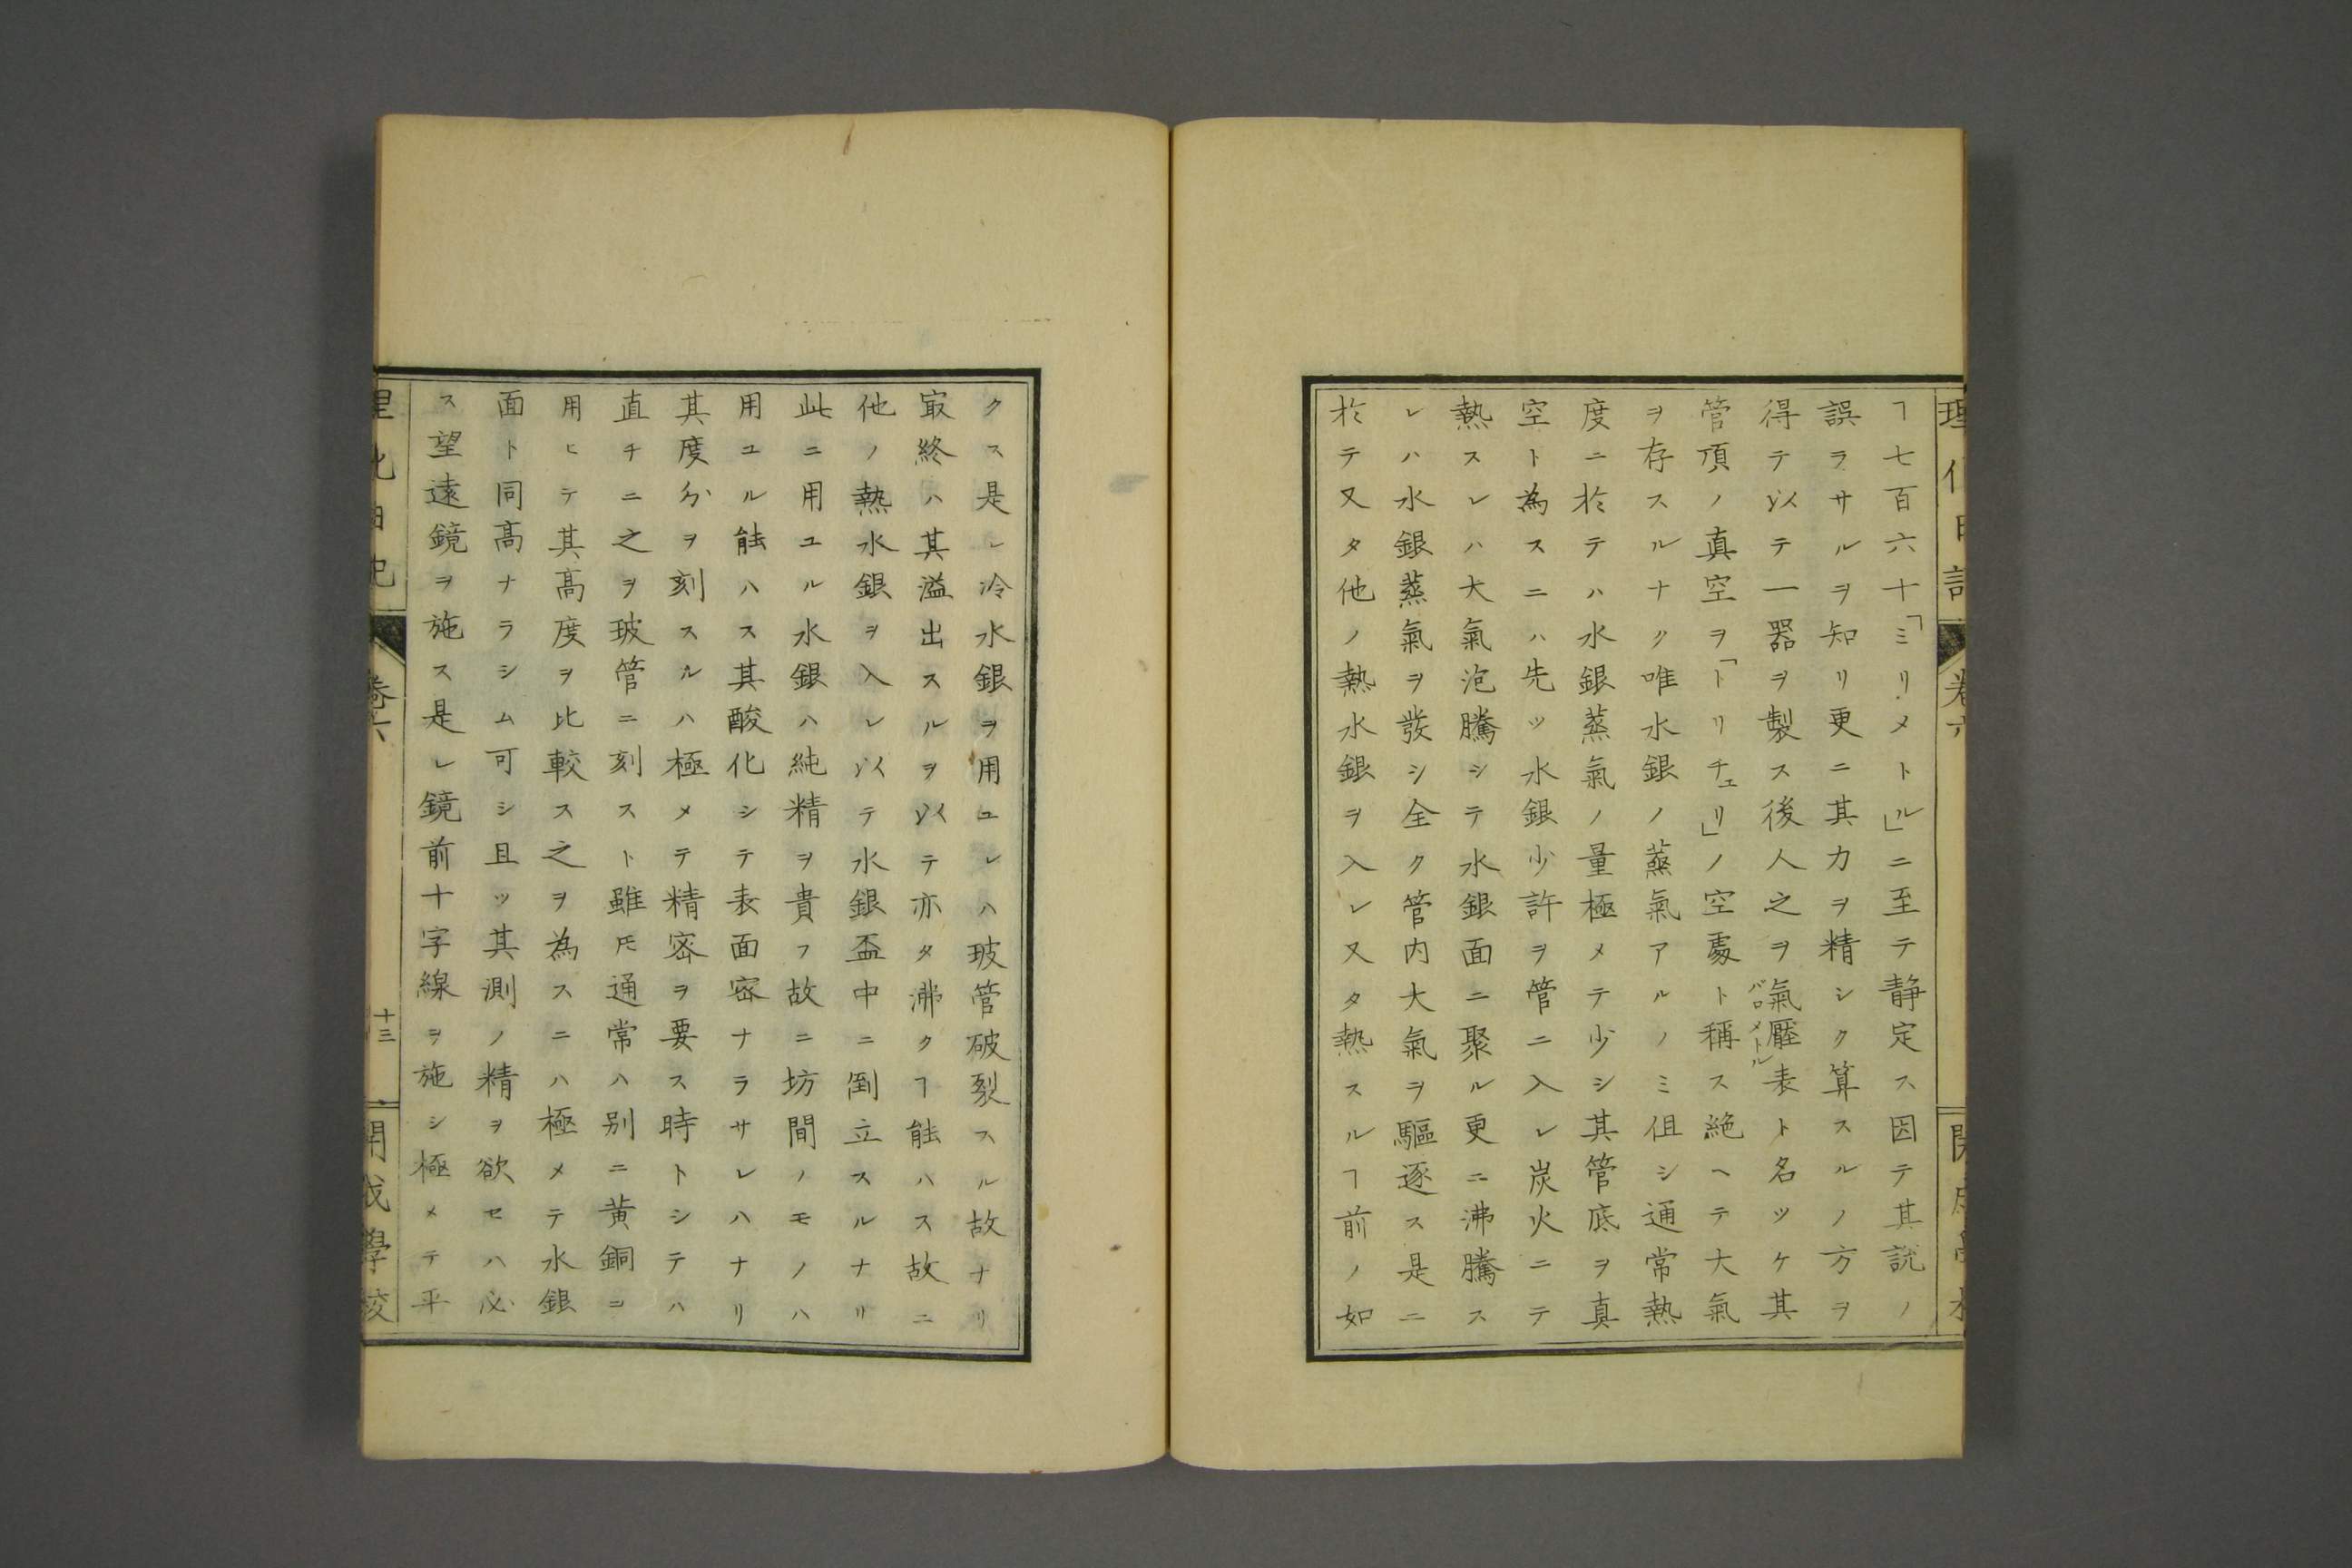 理化日記
卷六
開成學校
ヿ七百六十「ミリメトル」ニ至テ靜定ス因テ其說ノ
誤ラサルヲ知リ更ニ其力ヲ精シク算スルノ方ヲ
得テ以テ一器ヲ製ス後人之ヲ氣壓表ト名ツケ其
バロメトル
管頂ノ真空ヲ「トリチェリ」ノ空處ト稱ス絶ヘテ大氣
ヲ存スルナク唯水銀ノ蒸氣アルノミ但シ通常熱
度ニ於テハ水銀蒸氣ノ量極メテ少シ其管底ヲ真
空ト為スニハ先ツ水銀少許ヲ管ニ入レ炭火ニテ
熱スレハ大氣泡騰シテ水銀面ニ聚ル更ニ沸騰ス
レハ水銀蒸氣ヲ發シ全ク管内大氣ヲ驅逐ス是ニ
於テ又タ他ノ熱水銀ヲ入レ又タ熱スルヿ前ノ如
クス是レ冷水銀ヲ用ユレハ玻管破裂スル故ナリ
㝡終ハ其溢出スルヲ以テ亦タ沸クヿ能ハス故ニ
他ノ熱水銀ヲ入レ以テ水銀盃中ニ倒立スルナリ
此ニ用ユル水銀ハ純精ヲ貴フ故ニ坊間ノモノハ
用ユル能ハス其酸化シテ表面密ナラサレハナリ
其度分ヲ刻スルハ極メテ精密ヲ要ス時トシテハ
直チニ之ヲ玻管ニ刻スト雖𪜈通常ハ別ニ黄銅ヲ
用ヒテ其高度ヲ比較ス之ヲ為スニハ極メテ水銀
面ト同高ナラシム可シ且ツ其測ノ精ヲ欲セハ必
ス望遠鏡ヲ施ス是レ鏡前十字線ヲ施シ極メテ平
理化日記
卷六
十三
開成學校